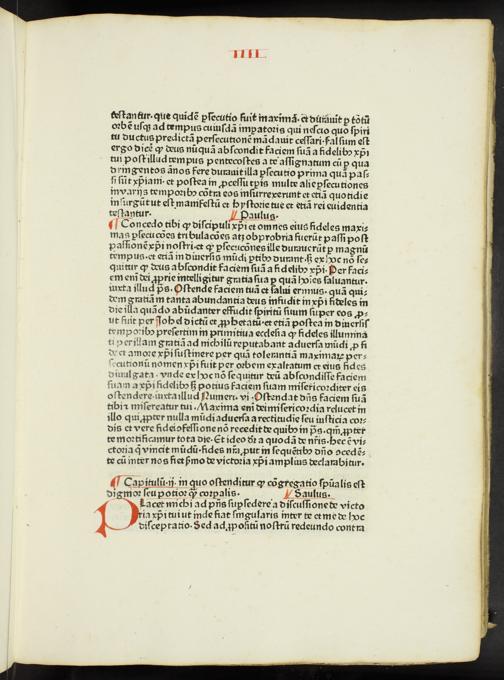 IIII
testantur. que quidē ꝑsecutio fuit maxima. et durauit ꝑ totū
orbē usqꝫ ad tempus cuiusdā imꝑatoris qui nescio quo spiri
tu ductus predictā persecutionē mādauit cessari. falsum est
ergo dicē ꝙ deus nūquā abscondit faciem suā a fidelibꝫ xp̄i
tui post illud tempus pentecostes a te assignatum cū ꝑ qua
dringentos ānos fere durauit illa ꝑsecutio prima quā pas
si sūt xp̄iani. et postea in ꝓcessu tꝑis multe alie ꝑsecutiones
in varijs temporibꝫ cōtra eos insurrexerunt et etiā quotidie
insurgūt ut est manifestū et hystorie tue et etiā rei euidentia
testantur. Paulus.
Concedo tibi ꝙ discipuli xp̄i et omnes eius fideles maxi
mas ꝑsecucōes tribulacōes atqꝫ obprobria fuerūt passi post
passionē xp̄i nostri. et ꝙ ꝑsecucōnes ille durauerūt ꝑ magnū
tempus. et etiā in diuersis mūdi ꝑtibꝫ durant. sꝫ ex hoc nō se
quitur ꝙ deus abscondit faciem suam a fidelibꝫ xp̄i. Per faci
em eni dei ꝓprie intelligitur gratia sua ꝑ quā hoīes saluantur.
iuxta illud ps̄. Ostende faciem tuā et salui erimus. quā qui
dem gratiam in tanta abundantia deus infudit in xp̄i fideles in
die illa quādo abūdanter effudit spiritū suum super eos ꝓ
ut fuit per Johel dictū et ꝓphetatū. et etiā postea in diuersis
temporibꝫ presertim in primitiua ecclesia ꝙ fideles illumina
ti per illam gratiā ad nichilū reputabant aduersa mūdi ꝓ fi
de et amore xp̄i sustinere per quā tolerantiā maximaꝝ per
secutionū nomen xp̄i fuit per orbem exaltatum et eius fides
diuulgata. unde ex hoc nō sequitur deū abscondisse faciem
suam a xp̄i fidelibꝫ sꝫ potius faciem suam misericorditer eis
ostendere. iuxta illud Numeri. vi. Ostendat dn̄s faciem suā
tibi et misereatur tui. Maxima eni dei misericordia relucet in
illo qui ꝓpter nulla mūdi aduersa a rectitudine seu iusticia cor
dis et vere fidei ꝯfessione nō recedit de quibꝫ in ps̄. qm̄ ꝓpter
te mortificamur tota die. Et ideo d̄r a quodā de nr̄is. hec ē vi
ctoria q̄ vincit mūdū. fides nr̄a. put in sequētibꝫ dn̄o acedē
te cū inter nos fiet ꝑmo de victoria xp̄i amplius declarabitur.
Capitulū. ij. in quo ostenditur ꝙ cōgregatio spūalis est
dignior seu potior ꝙ corꝑalis. Saulus.
Placet michi ad pn̄s supsedere a discussione de victo
ria xp̄i tui ut inde fiat singularis inter te et me de hoc
disceptatio. Sed ad ꝓpositū nostrū redeundo contra